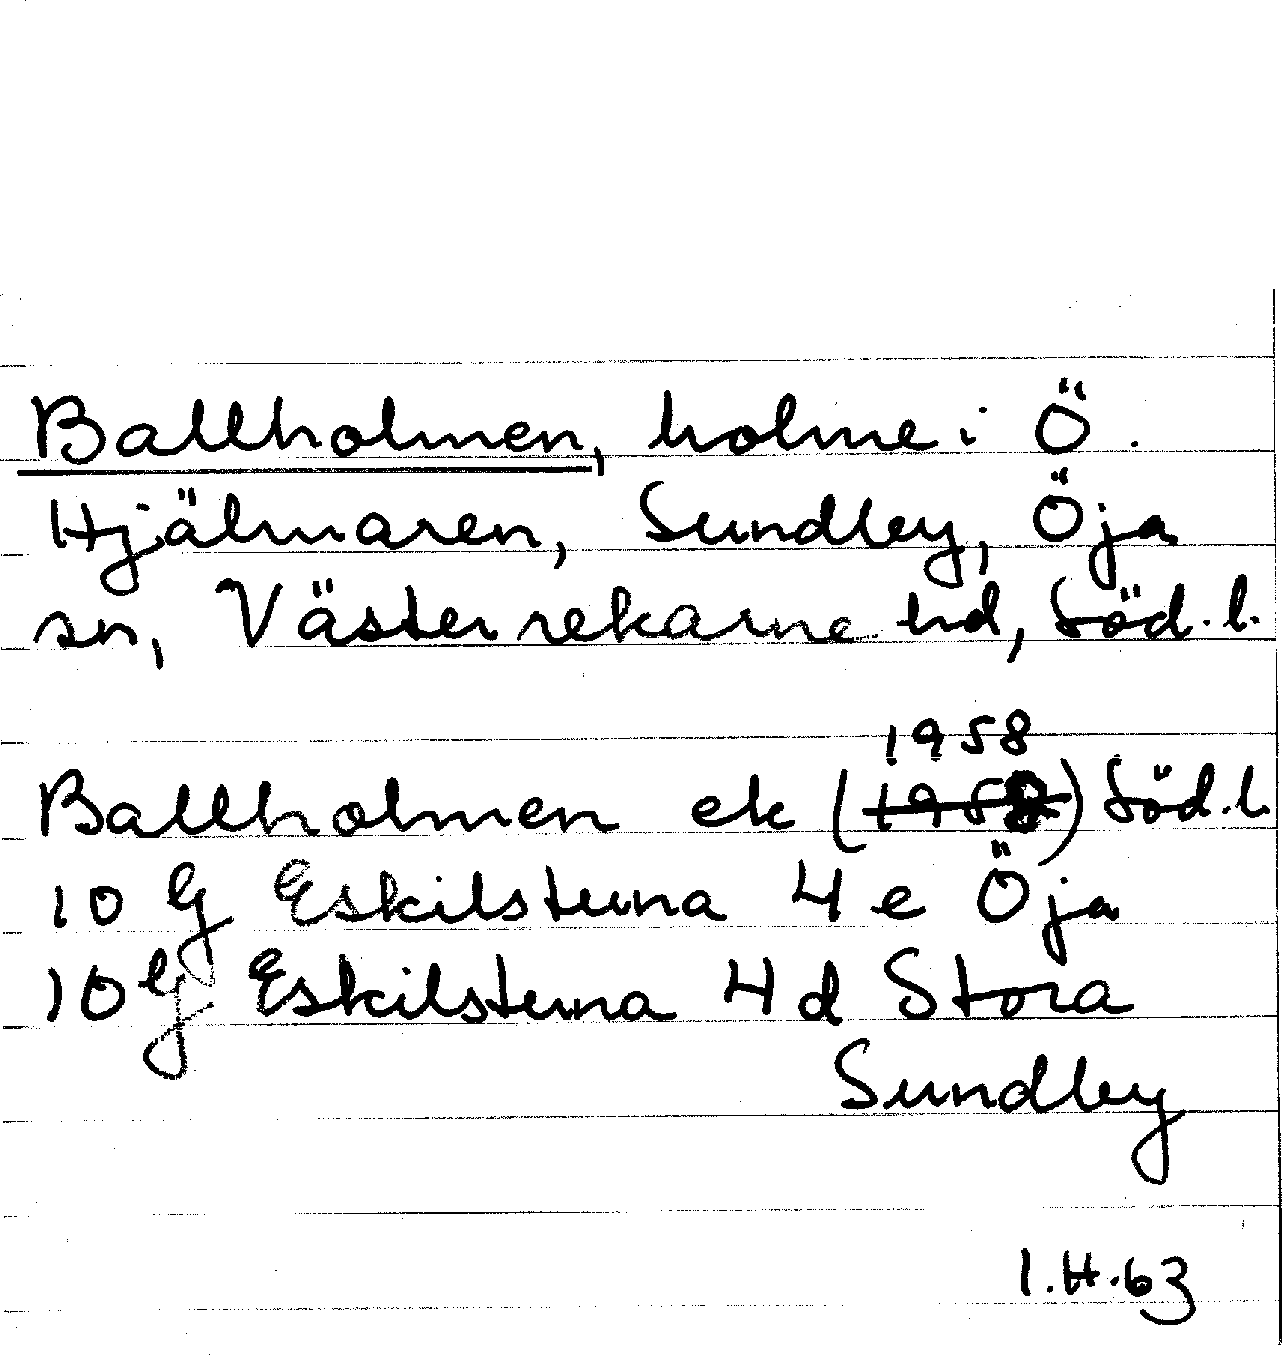 Ballholmen, holme i Ö.
Hjälmaren, Sundby, Öja
sn, Västerrekarne hd, Söd. l.
1958
Ballholmen ek (1958) Söd. l.
10 G Eskilstuna 4 e Öja
10 G Eskilstuna 4 d Stora
Sundby
I.H.63